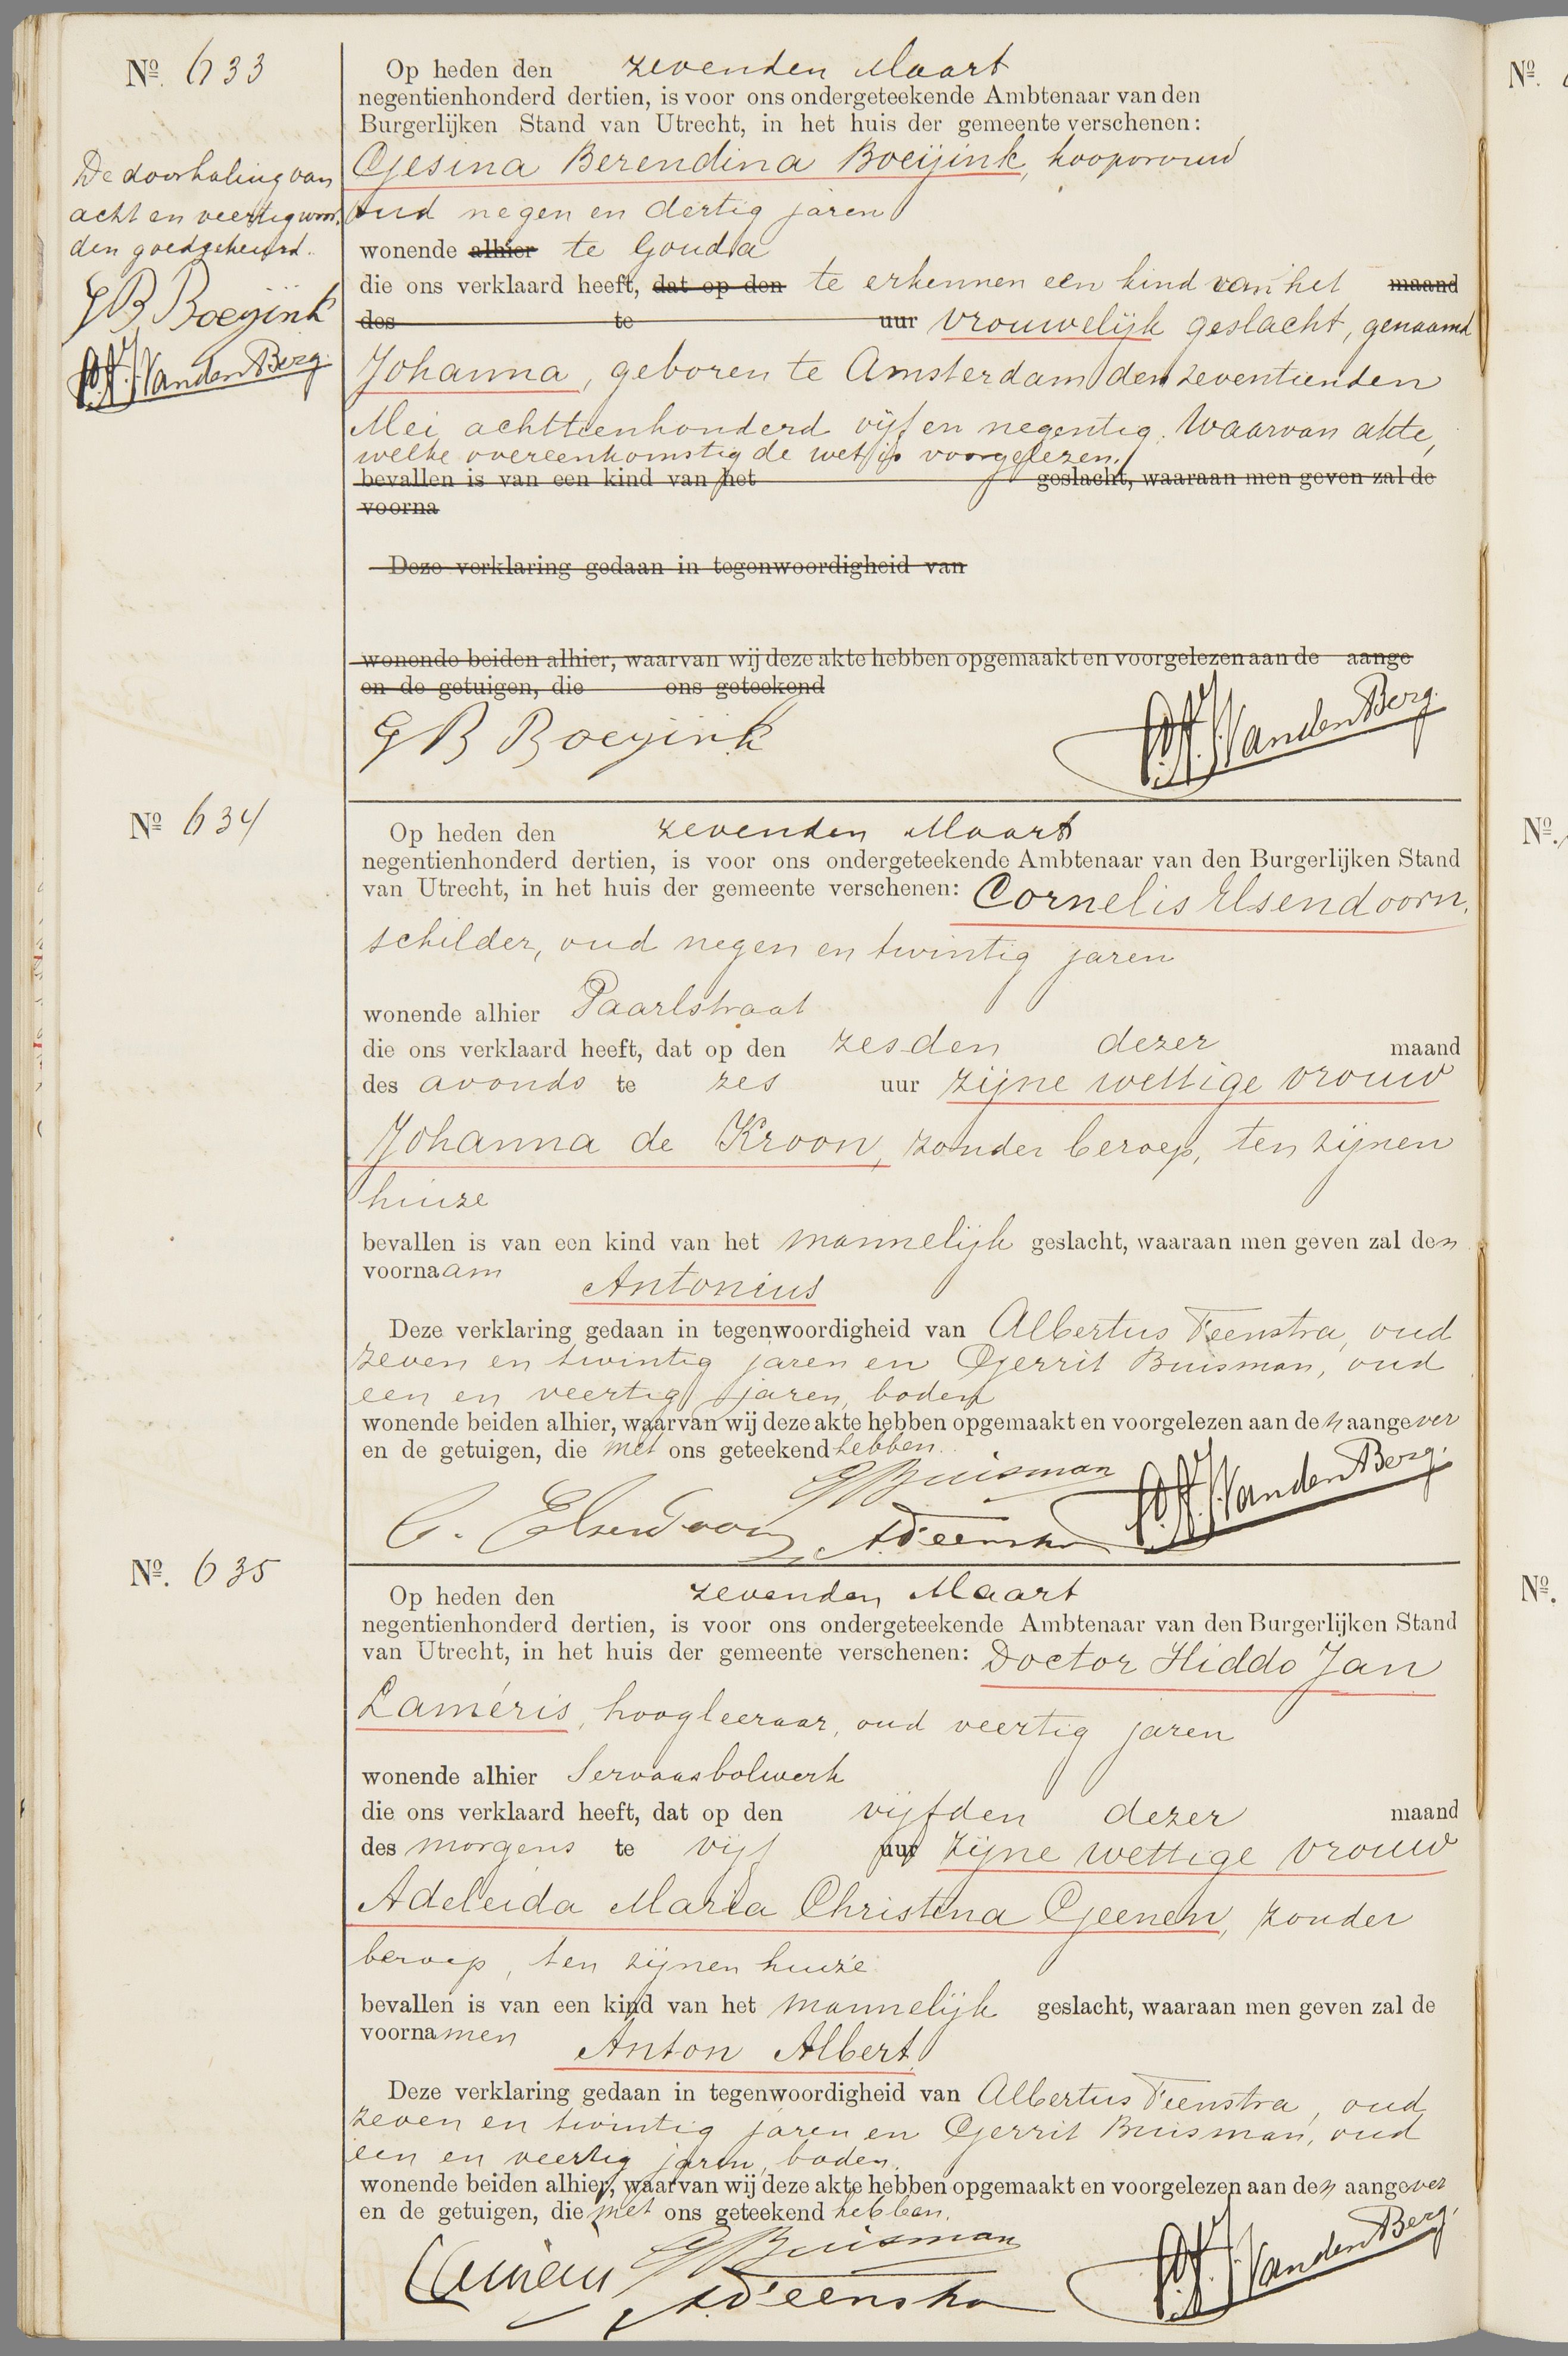 Nº. 633
De doorhaling van
acht en veertig woor
den goedgekeurd.
GB Boeyink
VandenBerg.
Op heden den zevenden Maart
negentienhonderd dertien, is voor ons ondergeteekende Ambtenaar van den
Burgerlijken Stand van Utrecht, in het huis der gemeente verschenen:
Gesina Berendina Boeijink, koopvrouw
oud negen en dertig jaren
wonende alhier te Gouda
die ons verklaard heeft, dat op den te erkennen een kind van het maand
des te uur vrouwelijk geslacht, genaamd
Johanna, geboren te Amsterdam den zeventienden
Mei achttienhonderd vijf en negentig. Waarvan akte,
welke overeenkomstig de wet is voorgelezen.
bevallen is van een kind van het geslacht, waaraan men geven zal de
voorna
Deze verklaring gedaan in tegenwoordigheid van
wonende beiden alhier, waarvan wij deze akte hebben opgemaakt en voorgelezen aan de aange
en de getuigen, die ons geteekend
GB Boeyink VandenBerg.
Nº 634
Op heden den zevenden Maart
negentienhonderd dertien, is voor ons ondergeteekende Ambtenaar van den Burgerlijken Stand
van Utrecht, in het huis der gemeente verschenen: Cornelis Elsendoorn,
schilder, oud negen en twintig jaren
wonende alhier Paarlstraat
die ons verklaard heeft, dat op den zesden dezer maand
des avonds te zes uur zijne wettige vrouw
Johanna de Kroon, zonder beroep, ten zijnen
huize
bevallen is van een kind van het mannelijk geslacht, waaraan men geven zal den
voornaam Antonius
Deze verklaring gedaan in tegenwoordigheid van Albertus Feenstra, oud
zeven en twintig jaren en Gerrit Buisman, oud
een en veertig jaren, boden
wonende beiden alhier, waarvan wij deze akte hebben opgemaakt en voorgelezen aan den aangever
en de getuigen, die met ons geteekend hebben.
C. Elsendoorn GBuisman AFeenstra VandenBerg.
Nº. 635
Op heden den zevenden Maart
negentienhonderd dertien, is voor ons ondergeteekende Ambtenaar van den Burgerlijken Stand
van Utrecht, in het huis der gemeente verschenen: Doctor Hiddo Jan
Laméris, hoogleeraar, oud veertig jaren
wonende alhier Servaasbolwerk
die ons verklaard heeft, dat op den vijfden dezer maand
des morgens te vijf uur zijne wettige vrouw
Adeleida Maria Christina Geenen, zonder
beroep, ten zijnen huize
bevallen is van een kind van het mannelijk geslacht, waaraan men geven zal de
voornamen Anton Albert
Deze verklaring gedaan in tegenwoordigheid van Albertus Feenstra, oud
zeven en twintig jaren en Gerrit Buisman, oud
een en veertig jaren, boden.
wonende beiden alhier, waarvan wij deze akte hebben opgemaakt en voorgelezen aan den aangever
en de getuigen, die met ons geteekend hebben.
Laméris GBuisman AFeenstra VandenBerg.
Nº.
Nº.
Nº.